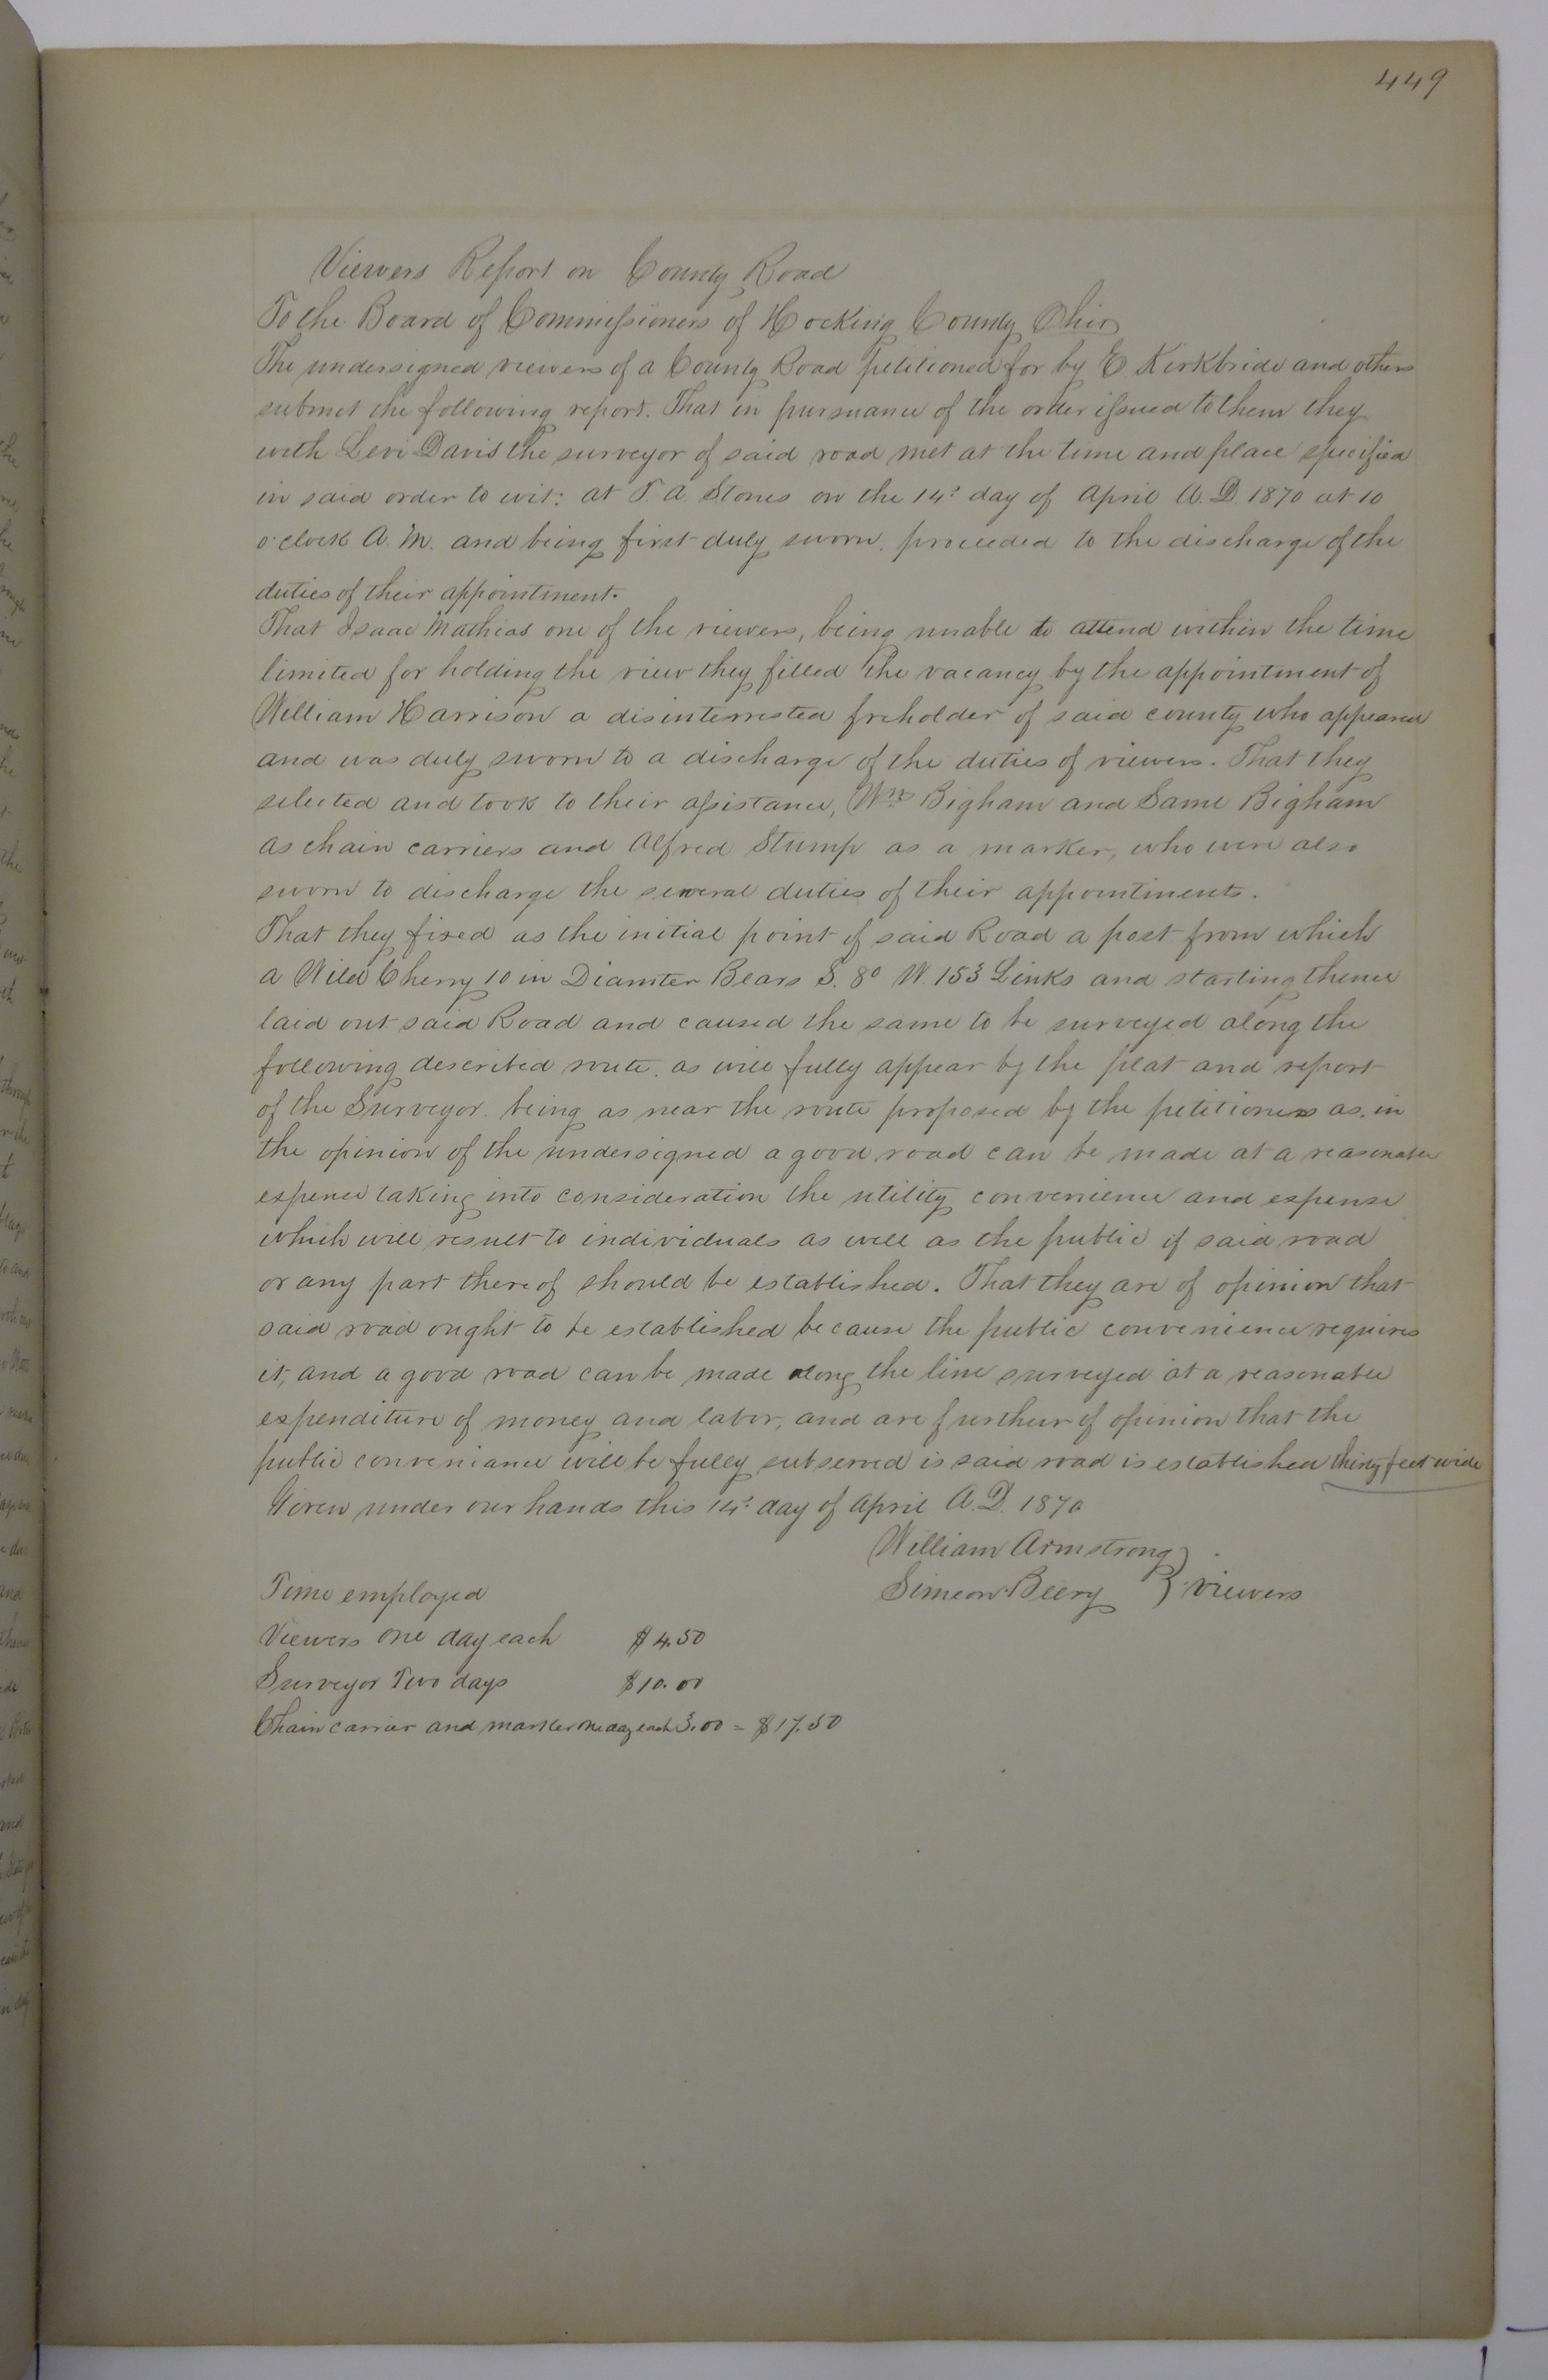 449
Viewers Report on County Road
To the Board of Commissioners of Hocking County Ohio
The undersigned viewers of a County Road petitioned for by E Kirkbride and others
submit the following report. That in pursuance of the order issued to them they
with Levi Davis the surveyor of said road met at the time and place specified
in said order to wit: at T. A. Stones on the 14? day of April A. D. 1870 at 10
o'clock A. M. and being first duly sworn. proceeded to the discharge of the
duties of their appointment.
That Isaac Mathias one of the viewers, being unable to attend within the time
limited for holding the view they filled the vacancy by the appointment of
William Harrison a disinterrested freholder of said county who appeared
and was duly sworn to a discharge of the duties of viewers. That they
selected and took to their assistance, Wm Bigham and Same Bigham
as chain carriers and Alfred Stump as a marker, who were also
sworn to discharge the several duties of their appointments.
That they fixed as the initial point of said Road a post from which
a Wild Cherry 10 in Diamter Bears S. 8° W. 153 Links and starting thence
laid out said Road and caused the same to be surveyed along the
following described route. as will fully appear by the plat and report
of the Surveyor. being as near the route proposed by the petitioners as. in
the opinion of the undersigned a good road can be made at a reasonable
expence taking into consideration the utility convenience and expense
which will result to individuals as well as the public if said road
or any part thereof should be established. That they are of opinion that
said road ought to be established because the public convenience requires
it, and a good road can be made along the line surveyed at a reasonable
expenditure of money and labor, and are furthur of opinion that the
public conveniance will be fully subserved is said road is established thirty feet wide
Given under our hands this 14? day of April A. D. 1870
William Armstrong }
Simeon Beery } viewers
Time employed
Viewers one day each $4.50
Surveyor Two days $10.00
Chain carrier and marker one day each 3.00 = $17.50